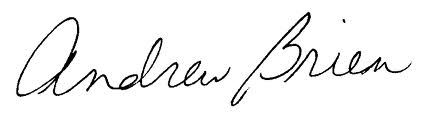 Andrew Brien